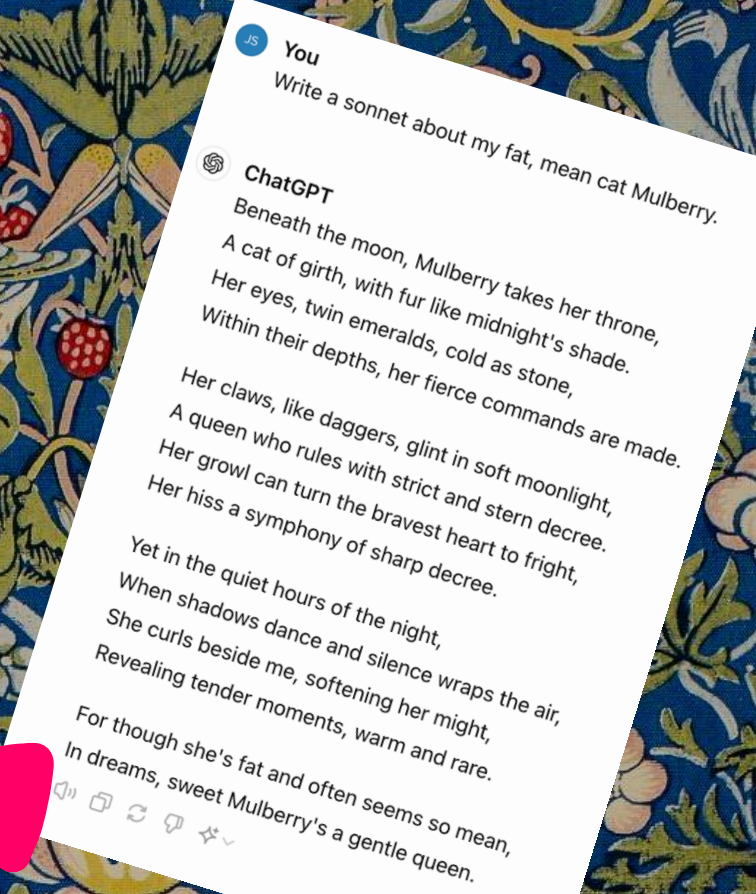 JS
You
Write a sonnet about my fat, mean cat Mulberry.
ChatGPT
Beneath the moon, Mulberry takes her throne,
A cat of girth, with fur like midnight's shade.
Her eyes, twin emeralds, cold as stone,
Within their depths, her fierce commands are made.
Her claws, like daggers, glint in soft moonlight,
A queen who rules with strict and stern decree.
Her growl can turn the bravest heart to fright,
Her hiss a symphony of sharp decree.
Yet in the quiet hours of the night,
When shadows dance and silence wraps the air,
She curls beside me, softening her might,
Revealing tender moments, warm and rare.
For though she's fat and often seems so mean,
In dreams, sweet Mulberry's a gentle queen.